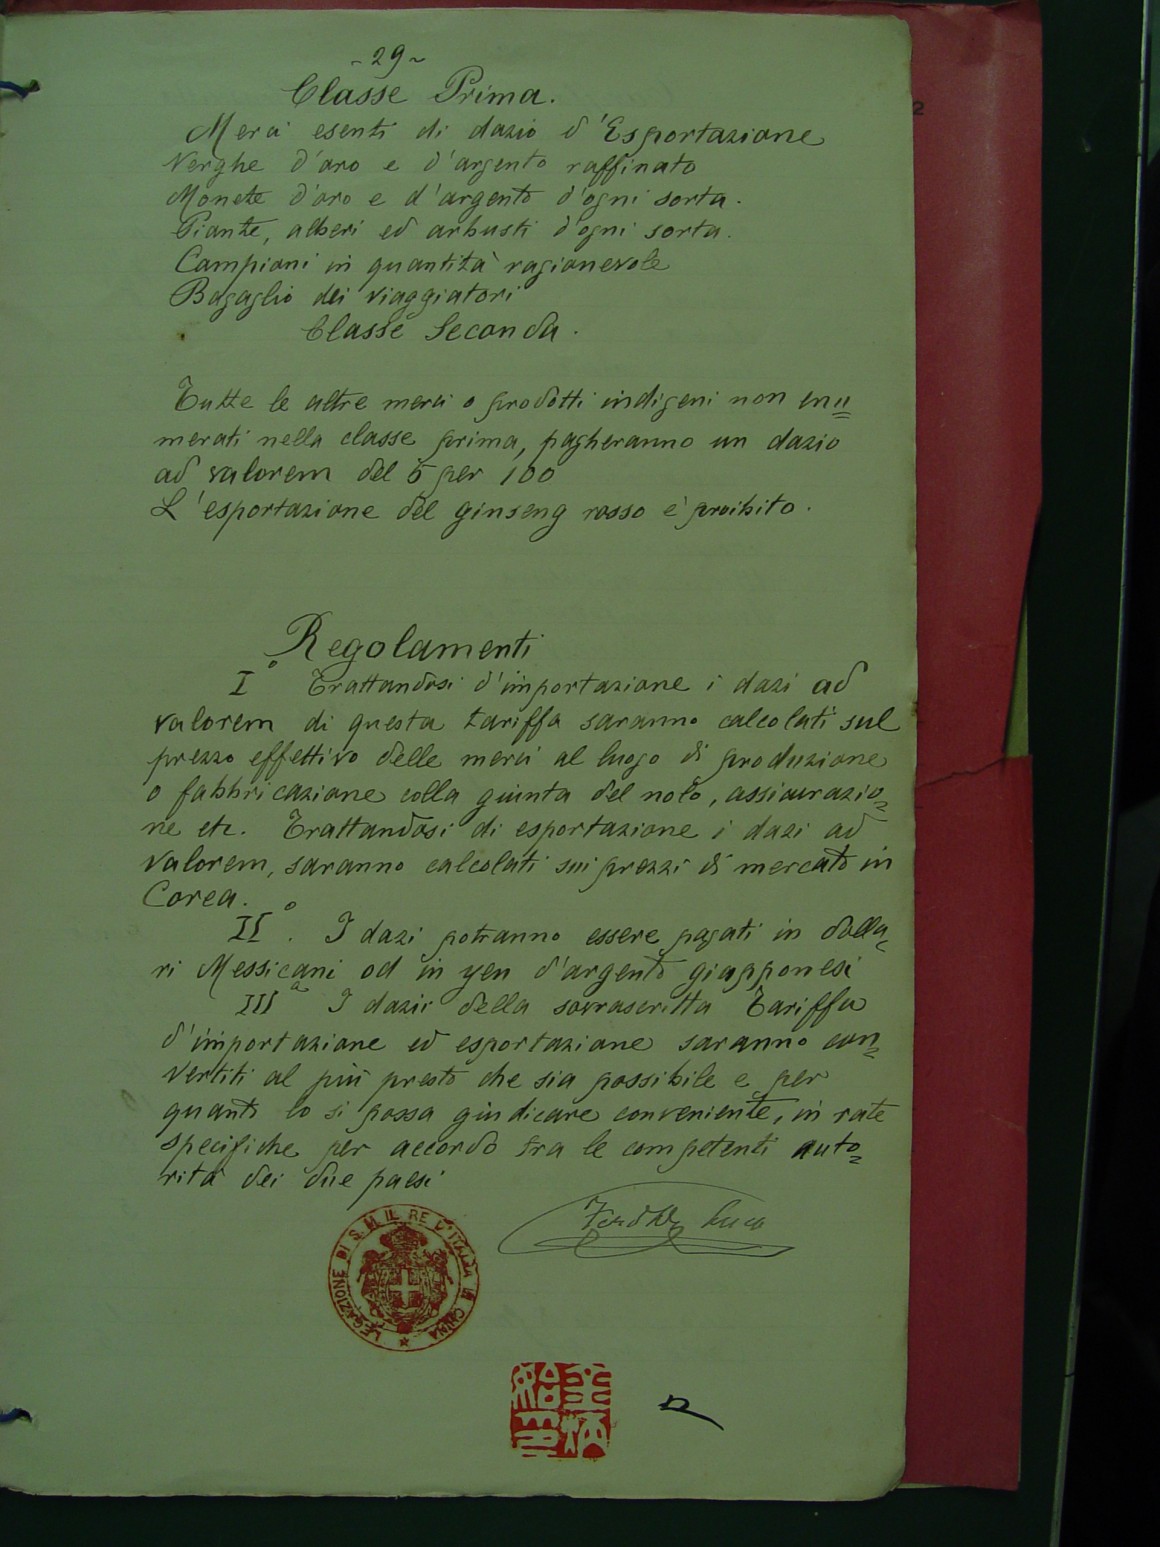 - 29 -
Classe Prima.
Merci esenti di dazio d'Esportazione
Verghe d'oro e d'argento raffinato
Monete d'oro e d'argento d'ogni sorta.
Piante, alberi ed arbusti d'ogni sorta.
Campioni in quantità ragionevole
Bagaglio dei viaggiatori
Classe Seconda.
Tutte le altre merci o prodotti indigeni non enu=
merati nella classe prima, pagheranno un dazio
ad valorem del 5 per 100
L'esportazione del ginseng rosso è proibito.
Regolamenti
I° Trattandosi d'importazione i dazi ad
valorem di questa tariffa saranno calcolati sul
prezzo effettivo delle merci al luogo di produzione
o fabbricazione colla giunta del nolo, assicurazio=
ne etc. Trattandosi di esportazione i dazi ad
valorem, saranno calcolati sui prezzi di mercato in
Corea.
II°. I dazi potranno essere pagati in dolla=
ri Messicani od in yen d'argento giapponesi
III° I dazii della sovrascritta Tariffa
d'importazione ed esportazione saranno con=
vertiti al più presto che sia possibile e per
quanto lo si possa giudicare conveniente, in rate
specifiche per accordo tra le competenti auto=
rità dei due paesi
LEGAZIONE DI S. M. IL RE D'ITALIA IN CHINA